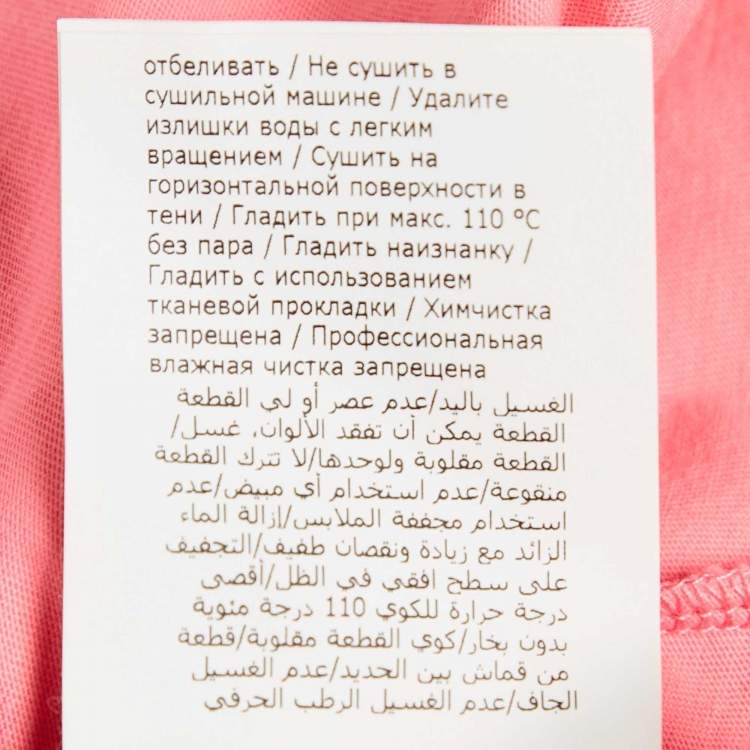 отбеливать / Не сушить в
сушильной машине / Удалите
излишки воды с легким
вращением / Сушить на
горизонтальной поверхности в
тени / Гладить при макс. 110 °C
без пара / Гладить наизнанку /
Гладить с использованием
тканевой прокладки / Химчистка
запрещена / Профессиональная
влажная чистка запрещена
الغسيل باليد/عدم عصر أو لي القطعة
القطعة يمكن أن تفقد الألوان، غسل/
القطعة مقلوبة ولوحدها/لا تترك القطعة
منقوعة/عدم استخدام أي مبيض/عدم
استخدام مجففة الملابس/إزالة الماء
الزائد مع زيادة ونقصان طفيف/التجفيف
على سطح افقي في الظل/أقصى
درجة حرارة للكوي 110 درجة مئوية
بدون بخار/كوي القطعة مقلوبة/قطعة
من قماش بين الحديد/عدم الغسيل
الجاف/عدم الغسيل الرطب الحرفي